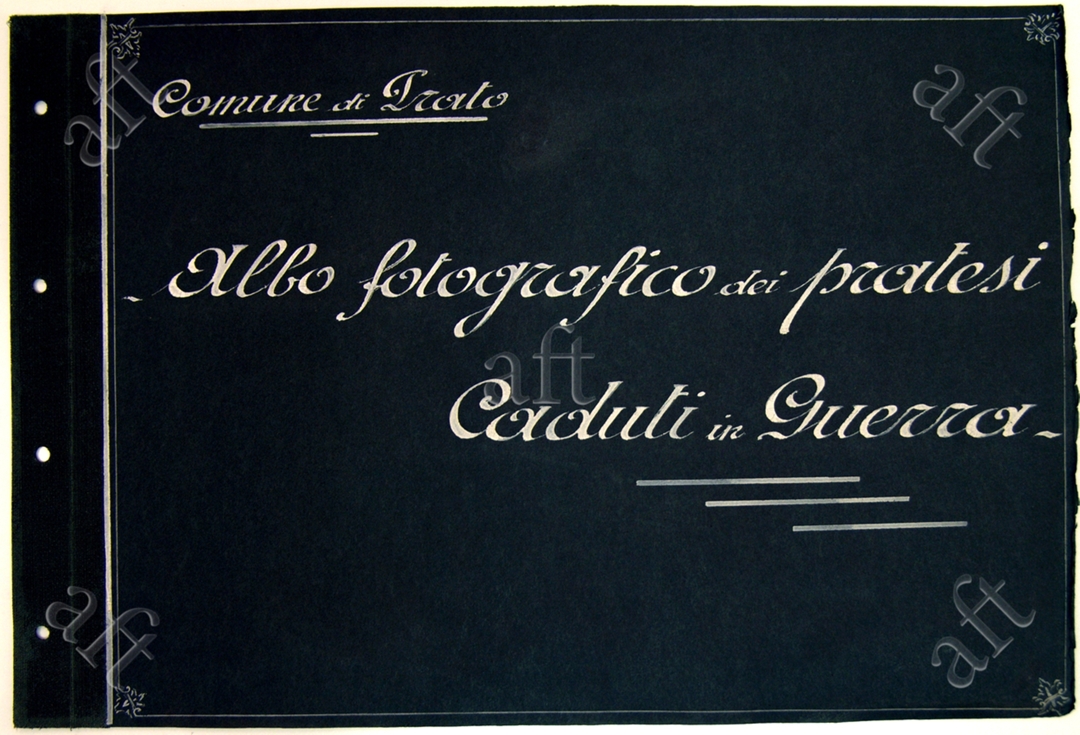 Comune di Prato
- Albo fotografico dei pratesi
Caduti in Guerra -
aft
aft
aft
aft
aft